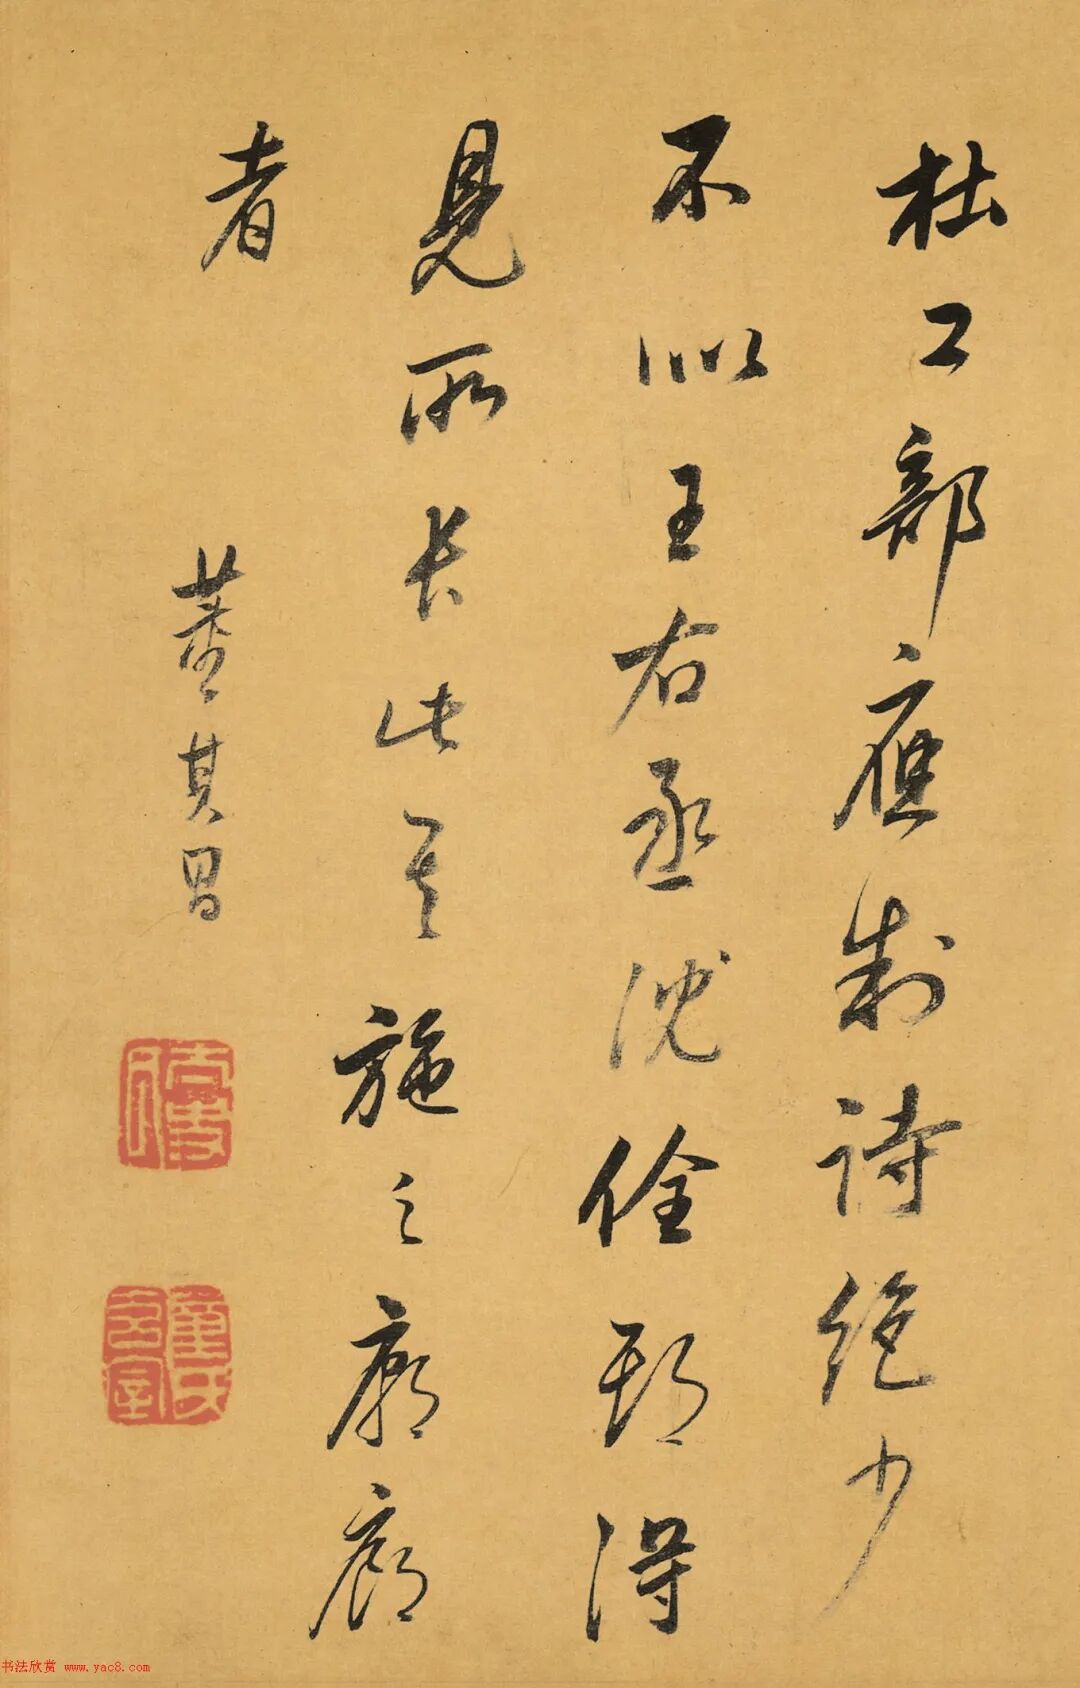 杜工部應制詩絕少
不似王右丞沈佺期得
見所長此其施之廊廟
者
董其昌
董氏
玄宰
书法欣赏 www.yac8.com